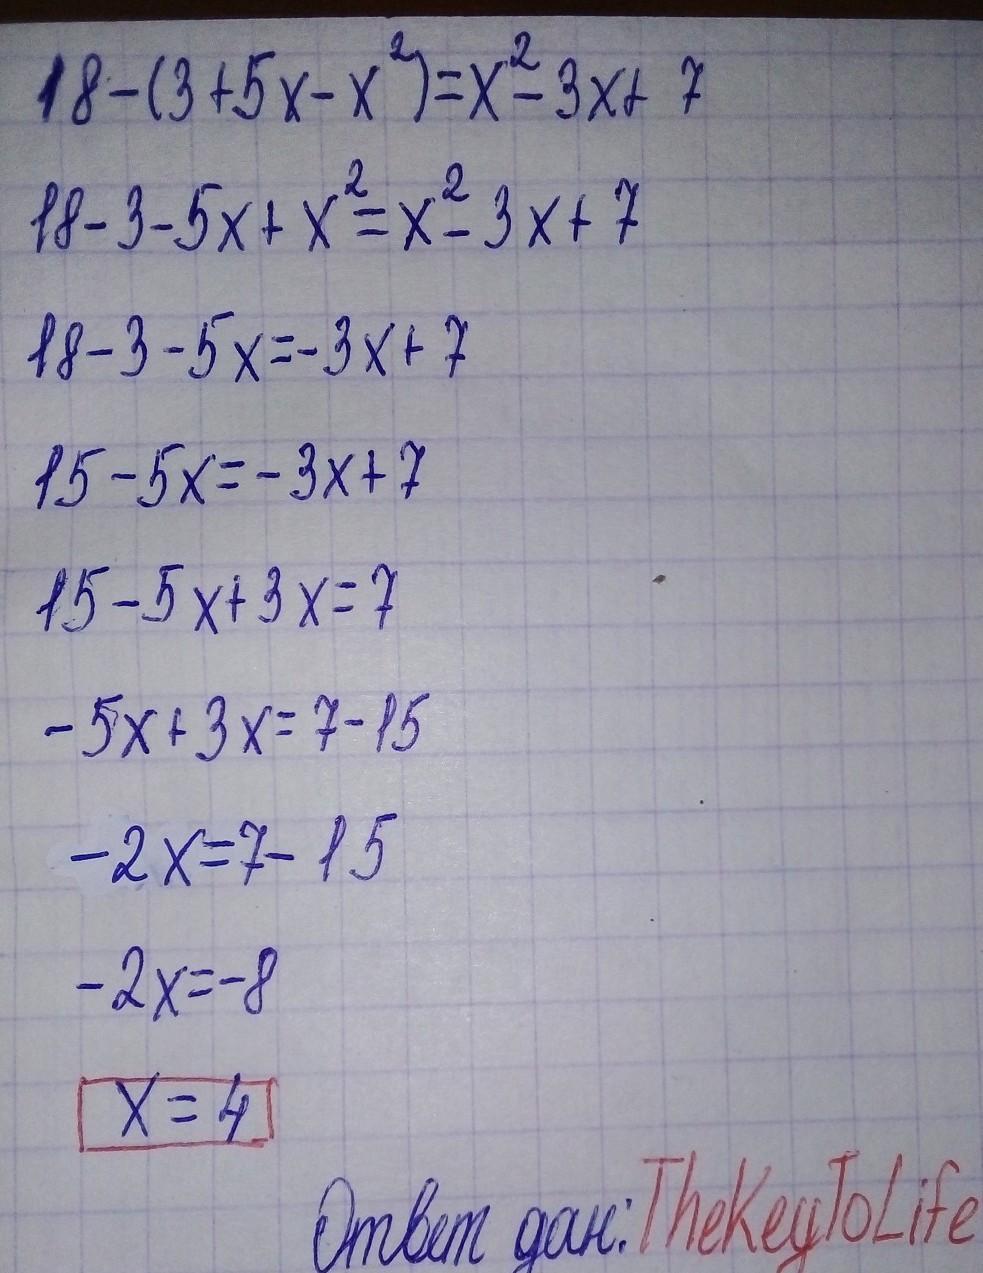 18-(3+5x-x²)=x²-3x+7
18-3-5x+x²=x²-3x+7
18-3-5x=-3x+7
15-5x=-3x+7
15-5x+3x=7
-5x+3x=7-15
-2x=7-15
-2x=-8
x=4
Ответ дан: TheKeyToLife